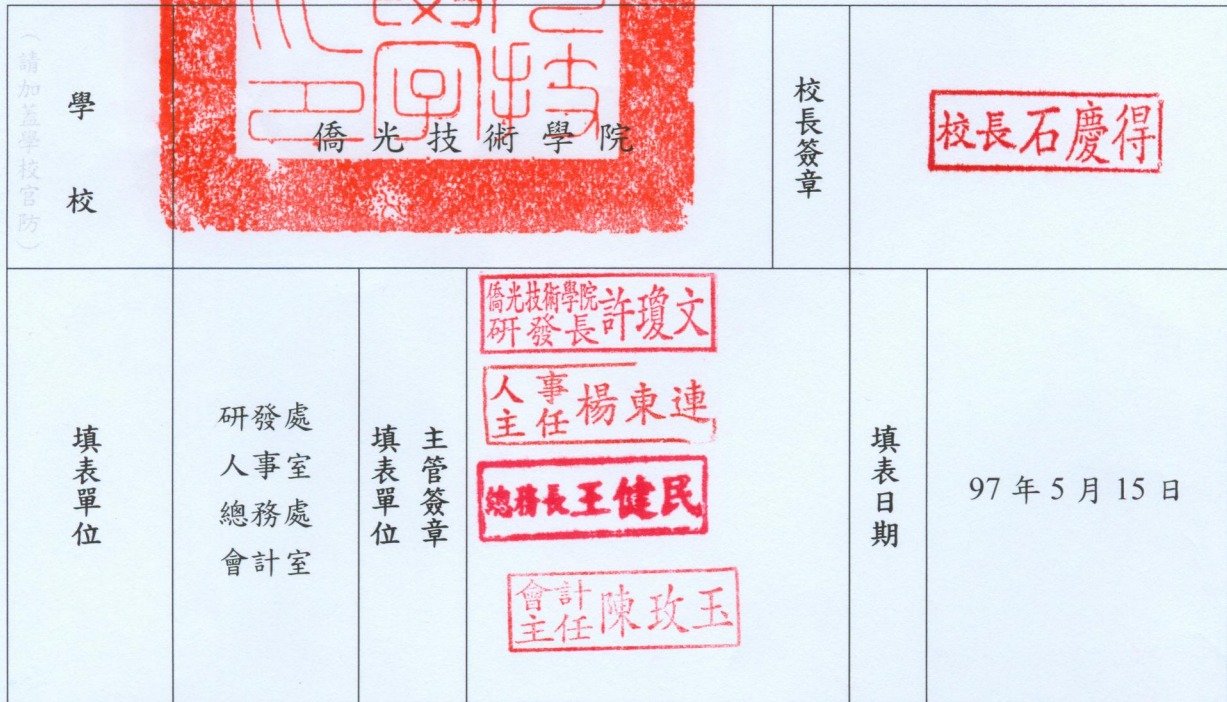 (請加蓋學校官防)
學校
僑光技術學院
校長簽章
校長石慶得
填表單位
研發處
人事室
總務處
會計室
填表單位
主管簽章
僑光技術學院
研發長許瓊文
人事
主任楊東連
總務長王健民
會計
主任陳玫玉
填表日期
97 年 5 月 15 日